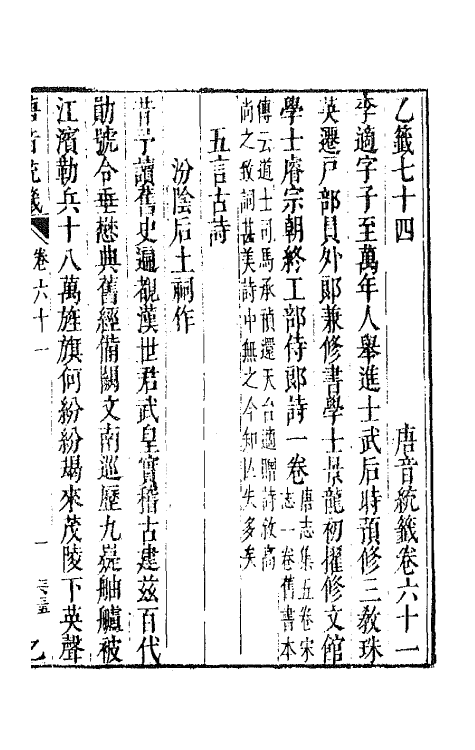 乙籤七十四　唐音統籤卷六十一
李適字子至萬年人舉進士武后時預修三教珠
英遷戸部員外郎兼修書學士景龍初擢修文館
學士睿宗朝終工部侍郎詩一卷唐志集五卷宋
志一卷舊書本
傳云道士司馬承禎還天台適贈詩敘高
尚之致詞甚美詩中無之今知其失多矣
五言古詩
汾陰后土祠作
昔予讀舊史遍觀漢世君武皇實稽古建茲百代
勛號令垂懋典舊經備闕文南巡歷九嶷舳艫被
江濱勒兵十八萬旌旗何紛紛朅來茂陵下英聲
唐音統籤
卷六十一
一
乙